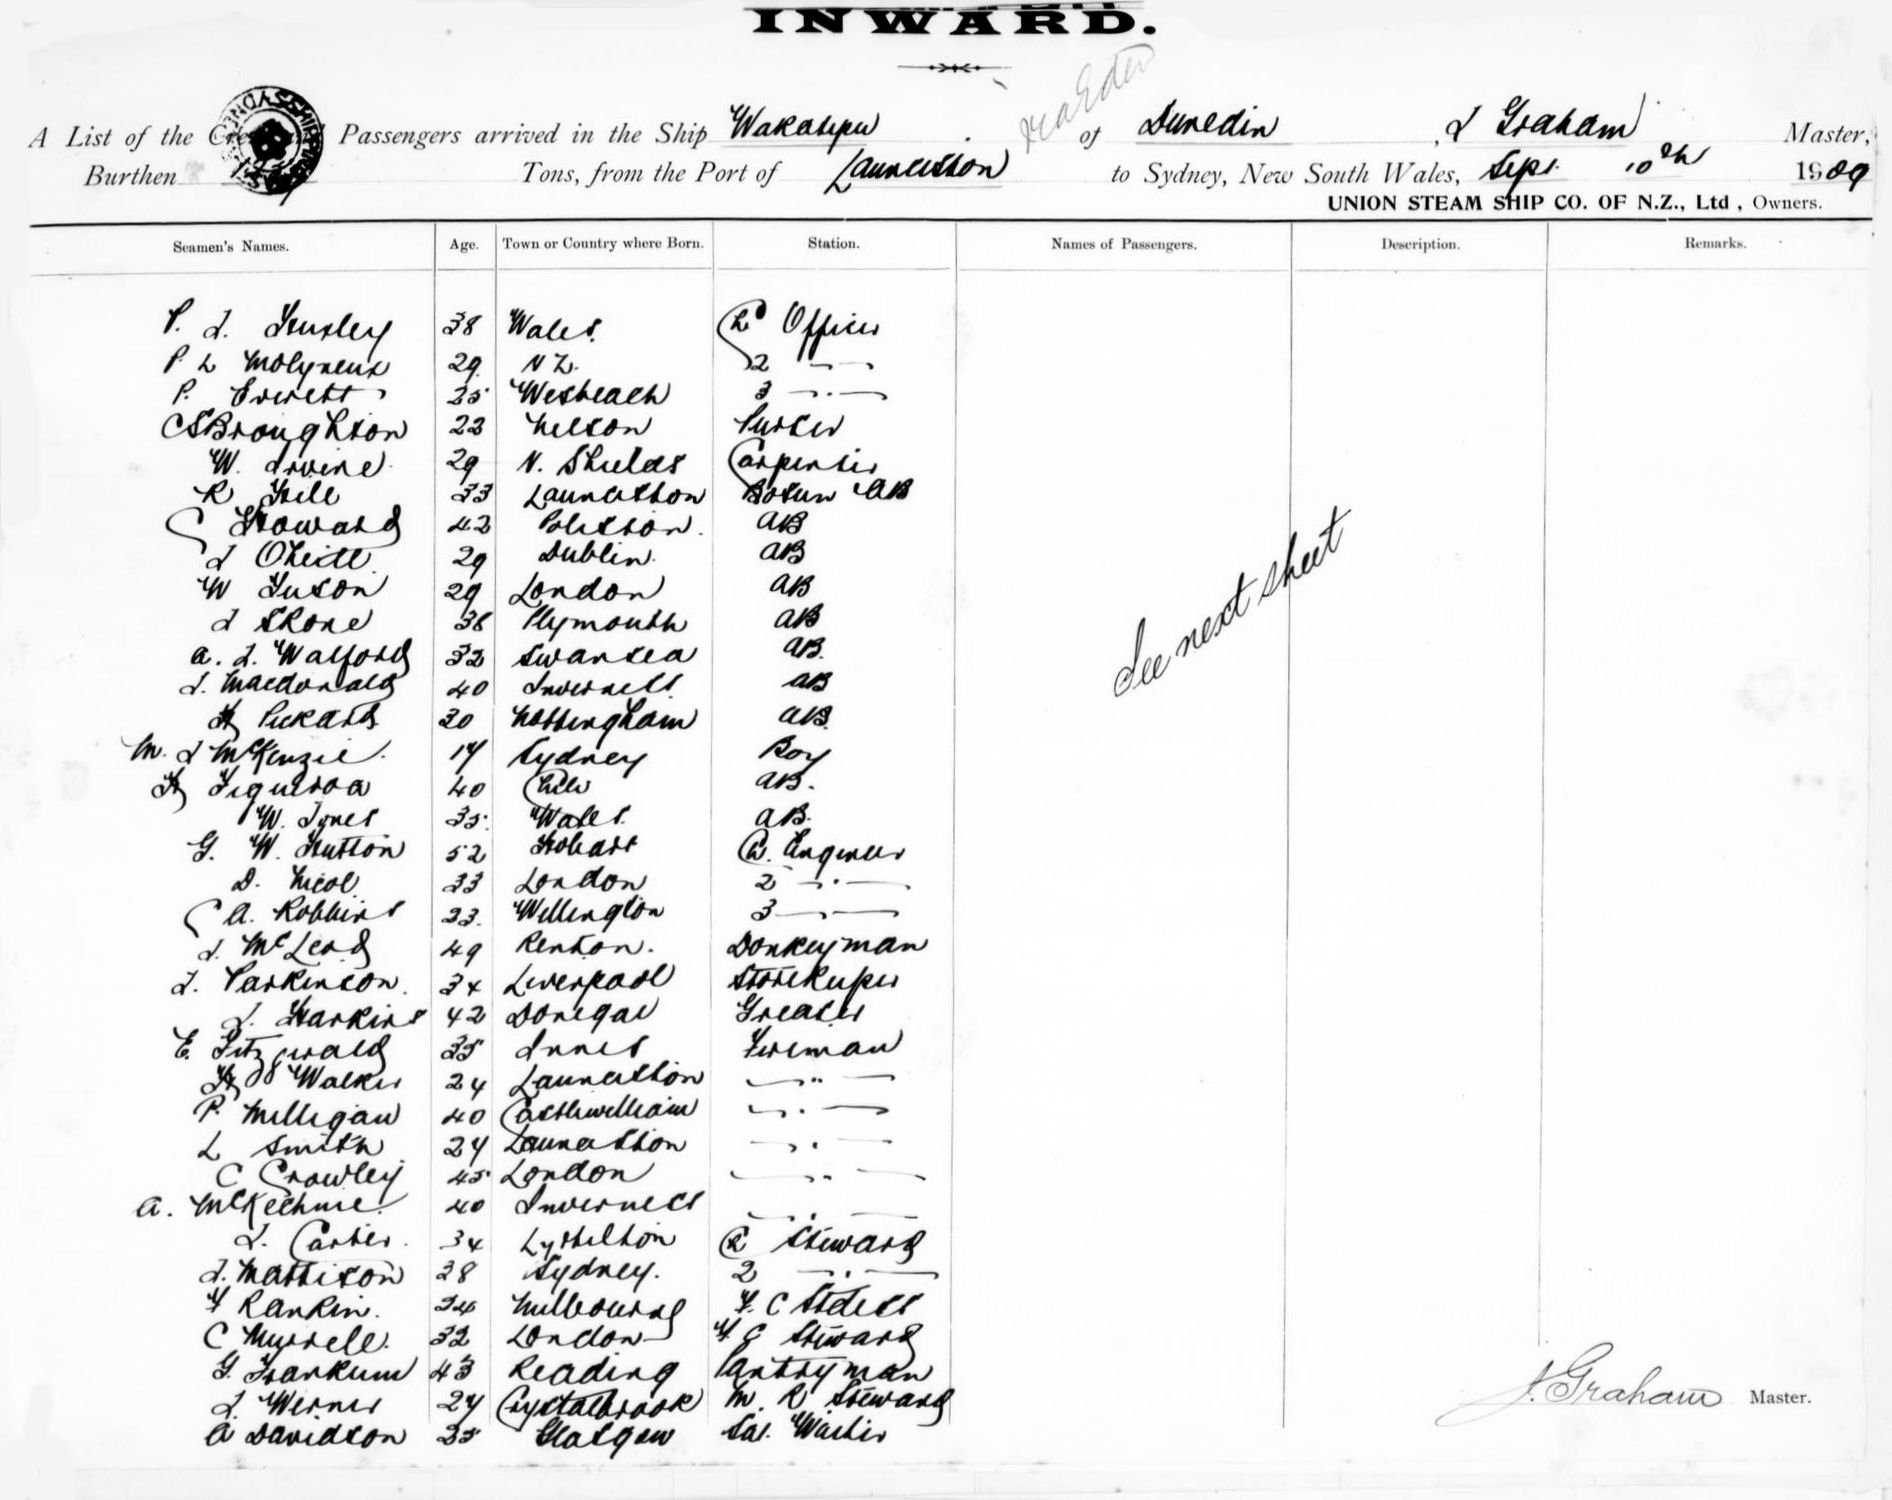 INWARD.
A List of the Crew Passengers arrived in the Ship Wakatipu of Dunedin, J Graham Master,
Burthen Tons, from the Port of Launceston to Sydney, New South Wales, Sept. 10th 1909
UNION STEAM SHIP CO. OF N.Z., Ltd., Owners.
Seamen's Names. Age. Town or Country where Born. Station. Names of Passengers. Description. Remarks.
P. J. 38 Wales. Ch Officer
P. L Molyneux 29 N Z. 2 —"—
P. Everett 25 Wesbeach 3 —"—
C S Broughton 22 Nelson Purser
W. Irvine 29 N. Shields Carpenter
R Hill 33 Launceston Bosun AB
C Howard 42 AB
J ONeill 29 Dublin. AB
W Tuson 29 London AB
J Shone 38 Plymouth AB
A. J. Walford 32 Swansea AB.
J. Macdonald 40 Inverness AB
H Pickard 30 Nottingham AB.
M. J McKenzie. 17 Sydney Boy
H Figueroa 40 Chili AB.
W. Jones 35. Wales. AB.
G. W. Hutton 52 Hobart Ch. Engineer
D. Nicol 33 London 2 —"—
C A. Robbins 23. Wellington 3 —"—
J. McLeod 49 Renton. Donkeyman
J. Parkinson. 34 Liverpool Storekeeper
J. Harkins 42 Donegal Greaser
E. Fitzgerald 35 Fireman
H Walker 24 Launceston —"—
P. Milligan 40 Castlewilliam —"—
L Smith 24 Launceston —"—
C Crowley 45 London —"—
A. McKechnie. 40 Inverness —"—
J. Carter. 34 Lyttelton Ch Steward
J. Mattison 28 Sydney. 2 —"—
F Rankin. 34 Melbourne F. C Stdess
C Myrrell. 32 London F. C Steward
G. Frankum 43 Reading Pantryman
J. Werner 24 Crystalbrook M. R Steward
A Davidson 25 Glasgow Sal. Waiter
See next sheet
J. Graham Master.